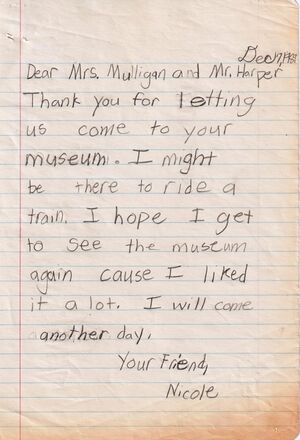 Dec 17, 1981
Dear Mrs. Mulligan and Mr. Harper
Thank you for letting
us come to your
museum. I might
be there to ride a
train. I hope I get
to see the museum
again cause I liked
it a lot. I will come
another day.
Your Friend,
Nicole